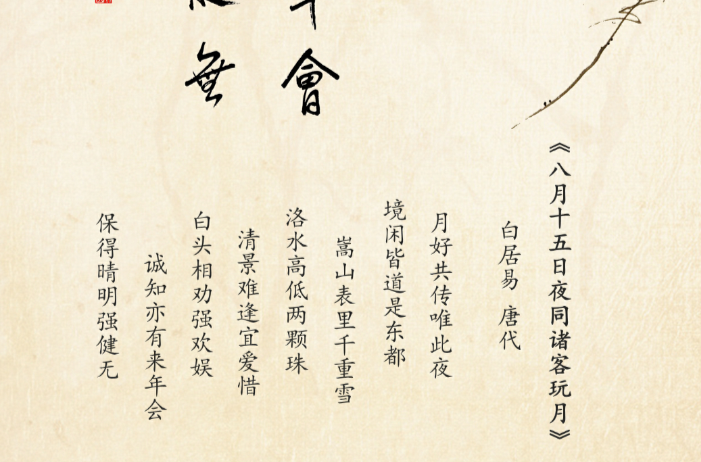 會
無
《八月十五日夜同诸客玩月》
白居易 唐代
月好共传唯此夜
境闲皆道是东都
嵩山表里千重雪
洛水高低两颗珠
清景难逢宜爱惜
白头相劝强欢娱
诚知亦有来年会
保得晴明强健无